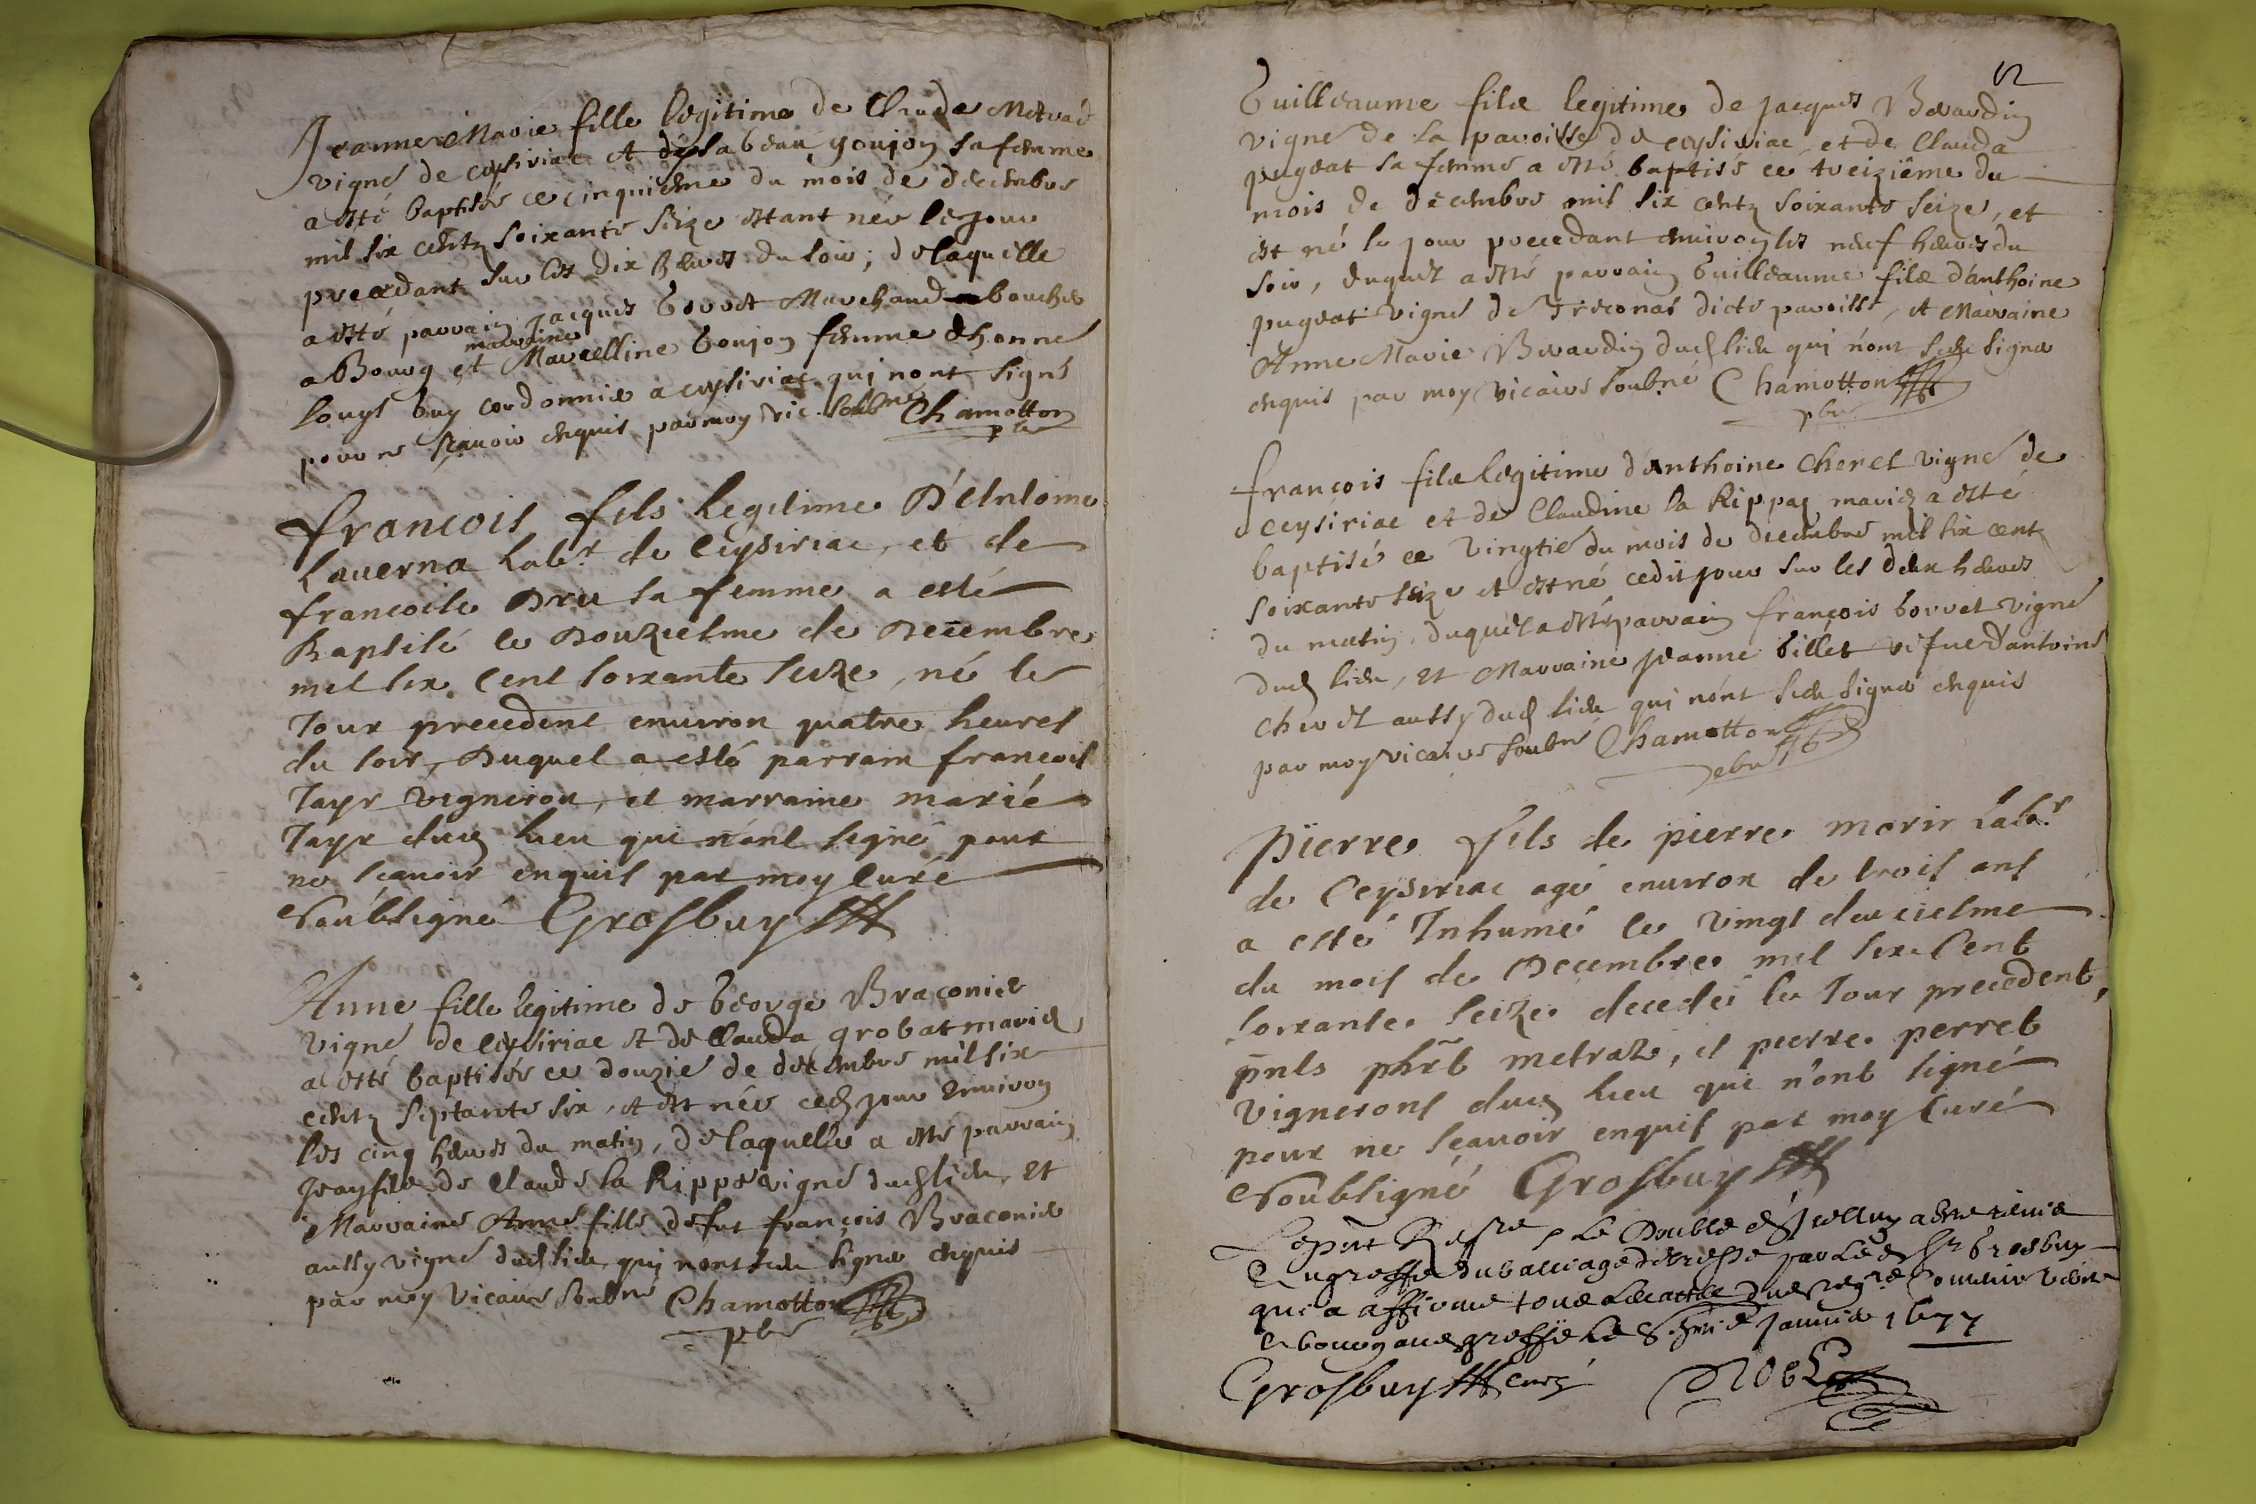 Jeanne Marie fille legitime de Claude Metra
vigne de ceysiriat et dysabeau goujon sa femme
a esté baptisée ce cinquieme du mois de decembre
mil six centz soixante seize estant née le jour
precedant sur les dix heures du soir, de laquelle
a esté parrain Jacques Gorret Marchand boucher
a Bourg et marraine Marcelline Goujon femme dhonne
Louys buy cordonnier a ceysiriat qui nont signé
pour ne sçavoir enquis par moy vic. soubné Chamotton
pbre
francois fils legitime D'Antoine
Laverna Labr de Ceysiriac, et de
francoise Dru sa femme a esté
Baptisé le Douziesme de Decembre
mil six Cent soixante seize, né le
Jour precedent environ quatre heures
du soir, Duquel a esté parrain francois
Tayr vigneron, et marraine marie
Tayr dud lieu qui n'ont signé pour
ne scavoir enquis par moy Curé
Soubsigné Grosbuy
Anne fille legitime de George Braconier
vigné de ceysiriac et de Clauda grobat mariez
a esté baptisée ce douzié de decembre mil six
centz septante six, et est née ced jour environ
les cinq heures du matin, de laquelle a esté parrain
Jean filz de Claude la Rippe vigné dud lieu, et
Marraine Anne fille de fut françois Braconier
aussy vigné dud lieu qui nont sceu signer enquis
par moy vicaire soubné Chamotton
pbre
Guilleaume filz legitime de Jacques Berardin
vigné de la paroisse de ceysiriac, et de Clauda
pugeat sa femme a esté baptisé ce treizième du
mois de decembre mil six centz soixante seize, et
est né le jour precedant environ les neuf heures du
soir, duquel a esté parrain Guilleaume filz d'anthoine
pugeat vigné de Treconas dicte paroisse, et Marraine
Anne Marie Berardin dud lieu qui n'ont sceu signer
enquis par moy vicaire soubné Chamotton
pbre
françois filz legitime d'anthoine Cheret vigné de
ceysiriac et de Claudine la Rippaz mariez a esté
baptisé ce vingtié du mois de decembre mil six centz
soixante seize et est né cedit jour sur les deux heures
du matin, duquel a esté parrain françois Gorret vigné
dud lieu, et Marraine Jeanne billet vefue d'antoine
Cheret aussy dud lieu qui nont sceu signer enquis
par moy vicaire soubné Chamotton
pbre
Pierre fils de pierre morir Labr
de Ceysiriac agé environ de trois ans
a esté Inhumé le vingt deuxiesme
du mois de Decembre mil six Cent
soixante seize decedé le Jour precedent,
pnts phbt metraz, et pierre perret
vignerons dud lieu qui n'ont signé
pour ne scavoir enquis par moy Curé
Soubsigné Grosbuy
Le Double
Au greffe du balliage de bresse par led Sr Grosbuy
qui a affirmé
a bourg aud greffe le janvier 1677
Grosbuy curé